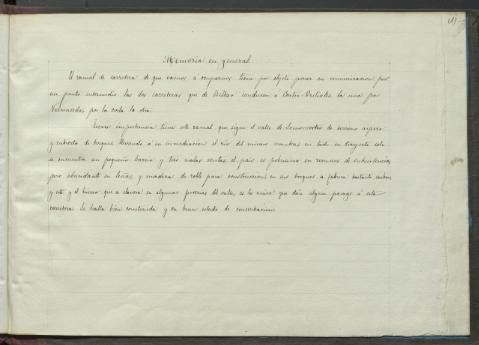 (1)
Memoria en general
El ramal de carretera de que vamos á ocuparnos tiene por objeto poner en comunicacion por
un punto intermedio las dos carreteras que de Bilbao conducen a Castro-Urdiales la una por
Valmaseda por la costa la otra.
Escasa importancia tiene este ramal que sigue el valle de Somorrostro de terreno áspero
y cubierto de bosques llevando a su inmediacion el rio del mismo nombre en todo su trayecto solo
se encuentra un pequeño barrio y tres malas ventas el pais es pobrisimo en recursos de subsistencias
pero abundante en leñas y madera de roble para construccion en sus bosques se fabrica bastante carbon
y este y el hierro que se elabora en algunas ferrerias del valle, es lo unico que dan algun pasage á esta
carretera se halla bien construida y en buen estado de conservacion